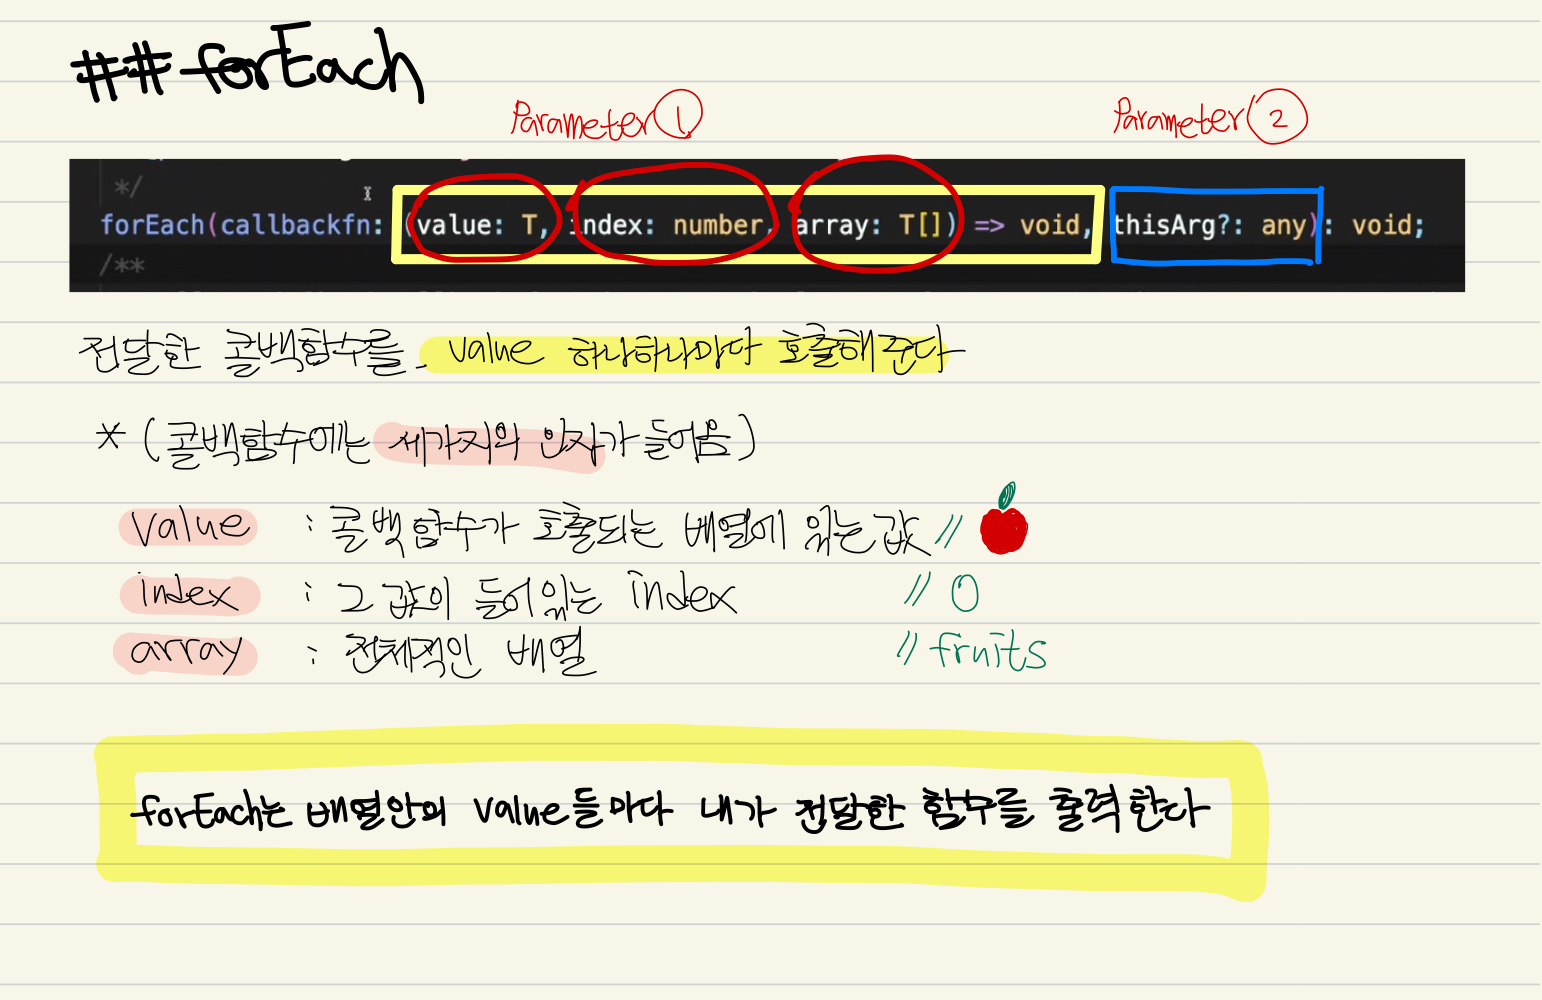 ## forEach
Parameter ① Parameter ②
*/
forEach(callbackfn: (value: T, index: number, array: T[]) => void, thisArg?: any): void;
/**
전달한 콜백함수를, value 하나하나마다 호출해준다
* (콜백함수에는 세가지의 인자가 들어옴)
value : 콜백함수가 호출되는 배열에 있는 값 //
index : 그 값이 들어있는 index // 0
array : 전체적인 배열 // fruits
forEach는 배열안의 value들마다 내가 전달한 함수를 출력한다